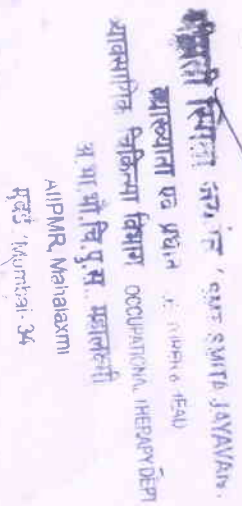 श्रीमती स्मिता SMT SMITA JAYAVANT
व्याख्याता एवं प्रधान & HEAD
व्यावसायिक चिकित्सा विभाग OCCUPATIONAL THERAPY DEPT
अ.भा.भौ.चि.पु.सं. महालक्ष्मी
AIIPMR, Mahalaxmi
मुंबई / Mumbai- 34